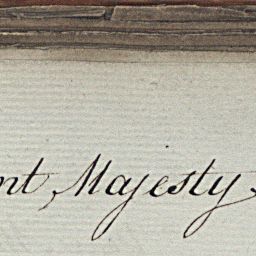 nt, Majesty